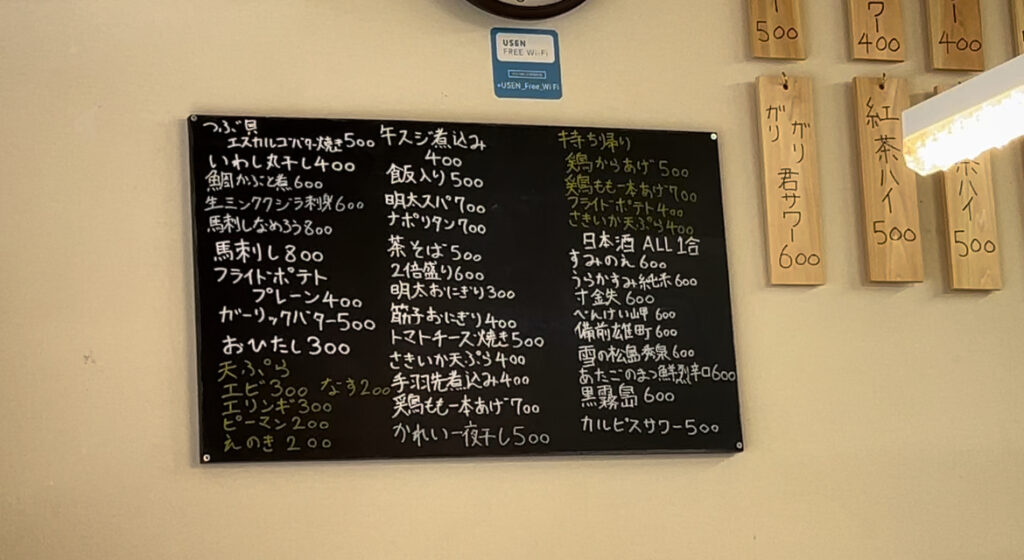 USEN
FREE Wi-Fi
+USEN_Free_WiFi
つぶ貝
エスカルゴバター焼き500
いわし丸干し400
鯛かぶと煮600
生ミンククジラ刺身600
馬刺しなめろう800
馬刺し800
フライドポテト
プレーン400
ガーリックバター500
おひたし300
天ぷら
エビ300 なす200
エリンギ300
ピーマン200
えのき200
牛スジ煮込み
400
飯入り500
明太スパ700
ナポリタン700
茶そば500
2倍盛り600
明太おにぎり300
筋子おにぎり400
トマトチーズ焼き500
さきいか天ぷら400
手羽先煮込み400
鶏もも一本あげ700
かれい一夜干し500
持ち帰り
鶏からあげ500
鶏もも一本あげ700
フライドポテト400
さきいか天ぷら400
日本酒 ALL 1合
すみのえ600
うらかすみ純米600
寸金鉄600
べんけい岬600
備前雄町600
雪の松島秀泉600
あたごのまつ鮮烈辛口600
黒霧島600
カルピスサワー500
ー
500
ワー
400
ー
400
ガリガリ君サワー600
紅茶ハイ500
茶ハイ500